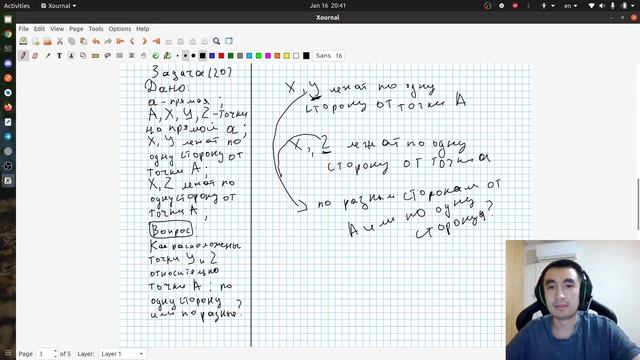 Activities Xournal Jan 16 20:41 en
Xournal
File Edit View Page Tools Options Help
Sans 16
Задача (20)
Дано:
a - прямая;
A, X, Y, Z - точки
на прямой a;
X, Y лежат по
одну сторону от
точки A;
X, Z лежат по
одну сторону от
точки A;
Вопрос:
Как расположены
точки Y и Z
относительно
точки A: по
одну сторону
или по разные?
X, Y лежат по одну
сторону от точки A
X, Z лежат по одну
сторону от точки a
по разным сторонам от
A или по одну
сторону?
Page 3 of 5 Layer: Layer 1